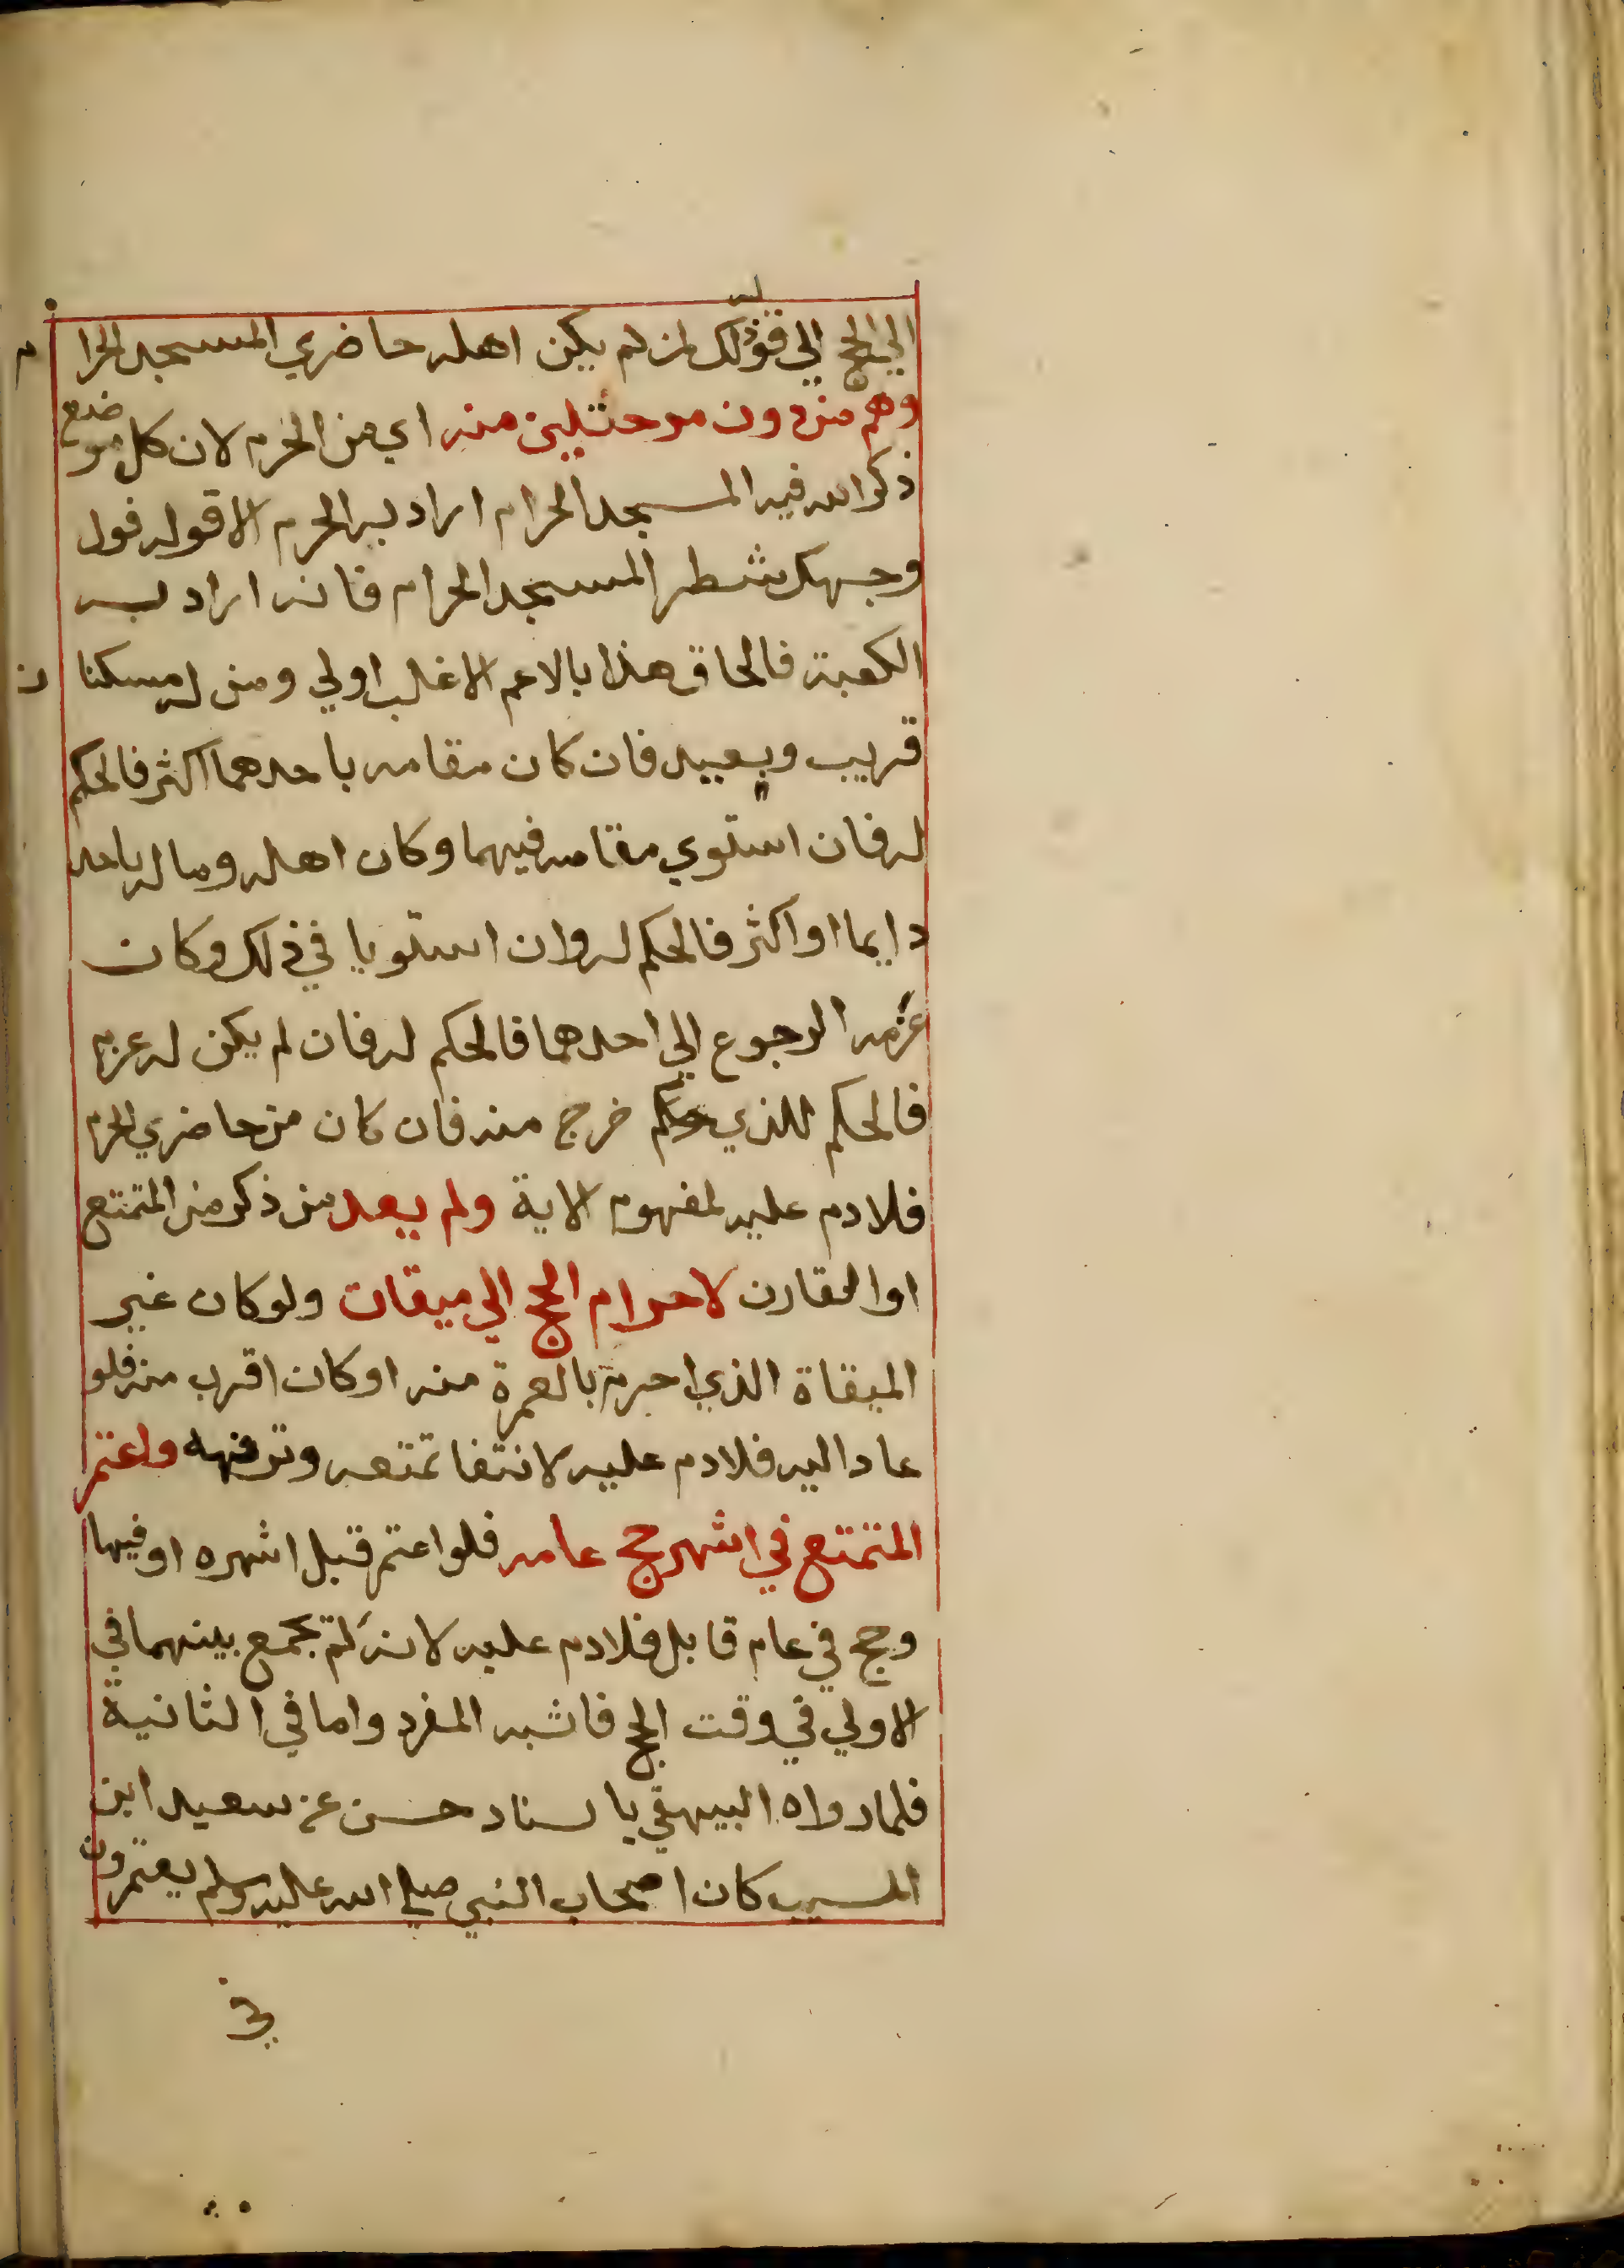 الي الحج الي قوله ذلك لمن لم يكن اهله حاضري المسجد الحرام
وهم من دون مرحلتين منه اي من الحرم لان كل موضع
ذكر الله فيه المسجد الحرام اراد به الحرم الا قوله فول
وجهك شطر المسجد الحرام فانه اراد به
الكعبة فالحاق هذا بالاعم الاغلب اولي ومن له مسكنان
قريب وبعيد فان كان مقامه باحدهما اكثر فالحكم
له فان استوي مقامه فيهما وكان اهله وماله باحد
دايما او اكثر فالحكم له وان استويا في ذلك وكان
عزمه الرجوع الي احدهما فالحكم له فان لم يكن له عزم
فالحكم للذي خرج منه فان كان من حاضري الحرم
فلا دم عليه لمفهوم الاية ولم يعد من ذكر من المتمتع
او القارن لاحرام الحج الي ميقات ولو كان غير
الميقاة الذي احرم بالعمرة منه او كان اقرب منه فلو
عاد اليه فلا دم عليه لانتفا تمتعه وترفهه واعتمر
المتمتع في اشهر حج عامه فلو اعتمر قبل اشهره او فيها
وحج في عام قابل فلا دم عليه لانه لم يجمع بينهما في
الاولي في وقت الحج فاشبه المفرد واما في الثانية
فلما رواه البيهقي باسناد حسن عن سعيد ابن
المسيب كان اصحاب النبي صلي الله عليه وسلم يعتمرون
في